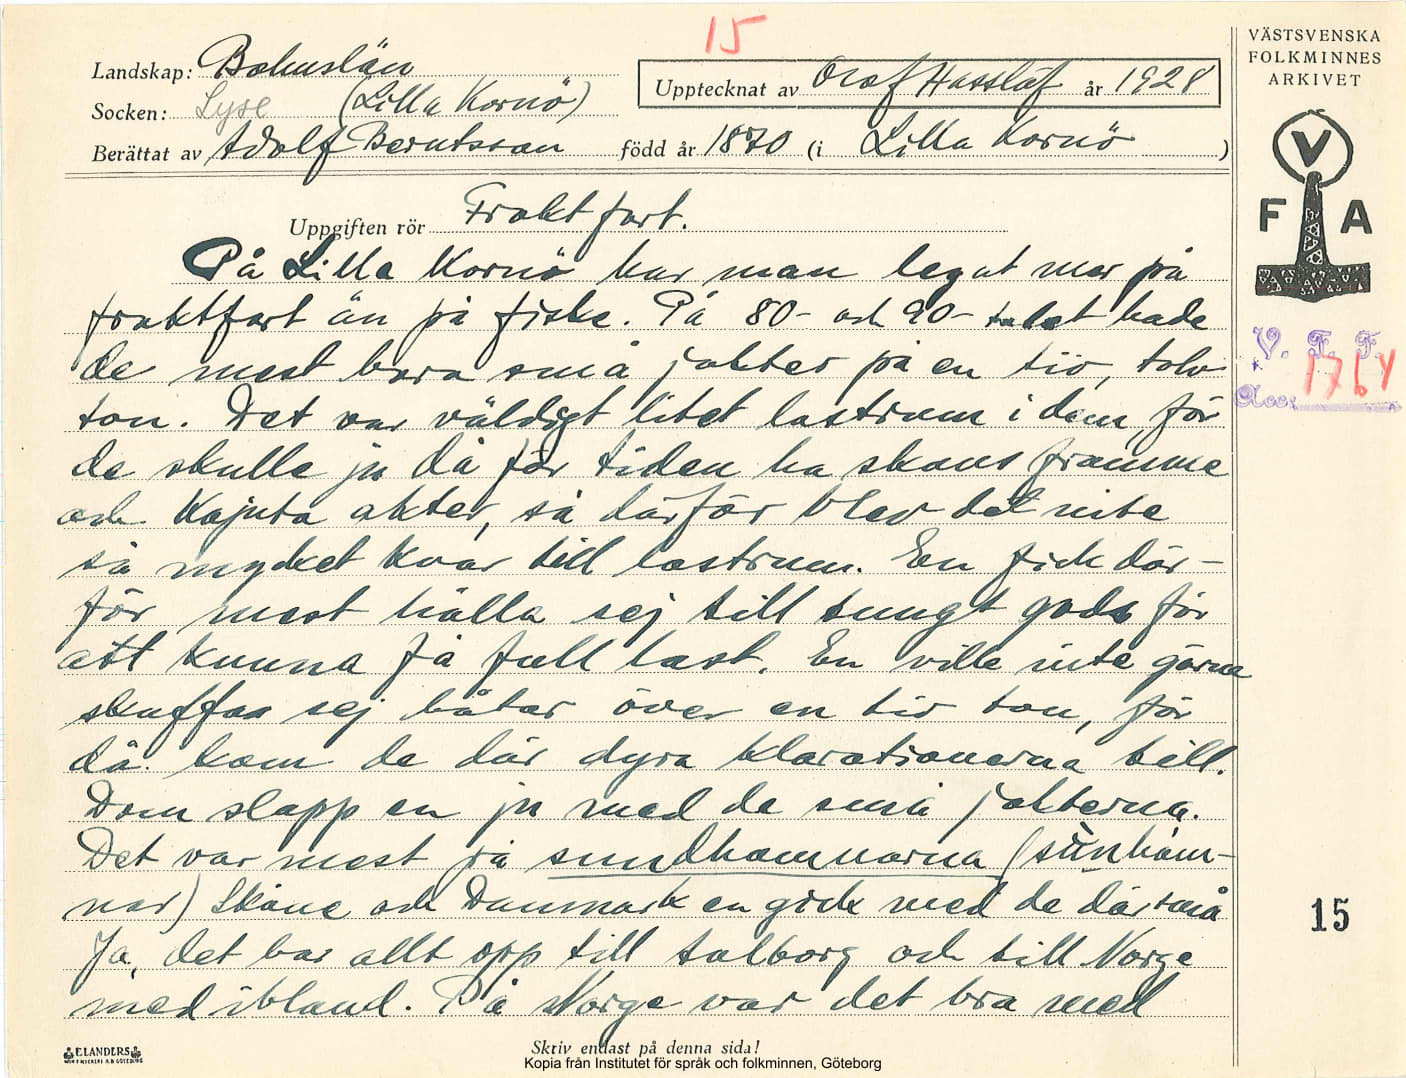 15
VÄSTSVENSKA
FOLKMINNES
ARKIVET
Landskap: Bohuslän
Upptecknat av Olof Hasslöf år 1928
Socken: Lyse (Lilla Kornö)
Berättat av Adolf Berntsson född år 1870 (i Lilla Kornö )
V
F A
Uppgiften rör Fraktfart.
På Lilla Kornö har man legat mer på
fraktfart än på fiske. På 80- och 90-talet hade
de mest bara små jakter på en tio, tolv
ton. Det var väldigt litet lastrum i dem, för
de skulle ju då för tiden ha skans framme
och kajuta akter, så därför blev det inte
så mycket kvar till lastrum. En fick där-
för mest hålla sej till tungt gods för
att kunna få full last. En ville inte gärna
skaffa sej båtar över en tio ton, för
då kom de där dyra klarationerna till.
Dom slapp en ju med de små jakterna.
Det var mest på sundhamnarna (sùnhàm-
nar) Skåne och Danmark en gick med de där små
Ja, det bar allt opp till Aalborg och till Norge
med ibland. På Norge var det bra med
V. F. F.
Acc. 1764
15
ELANDERS
Skriv endast på denna sida!
Kopia från Institutet för språk och folkminnen, Göteborg